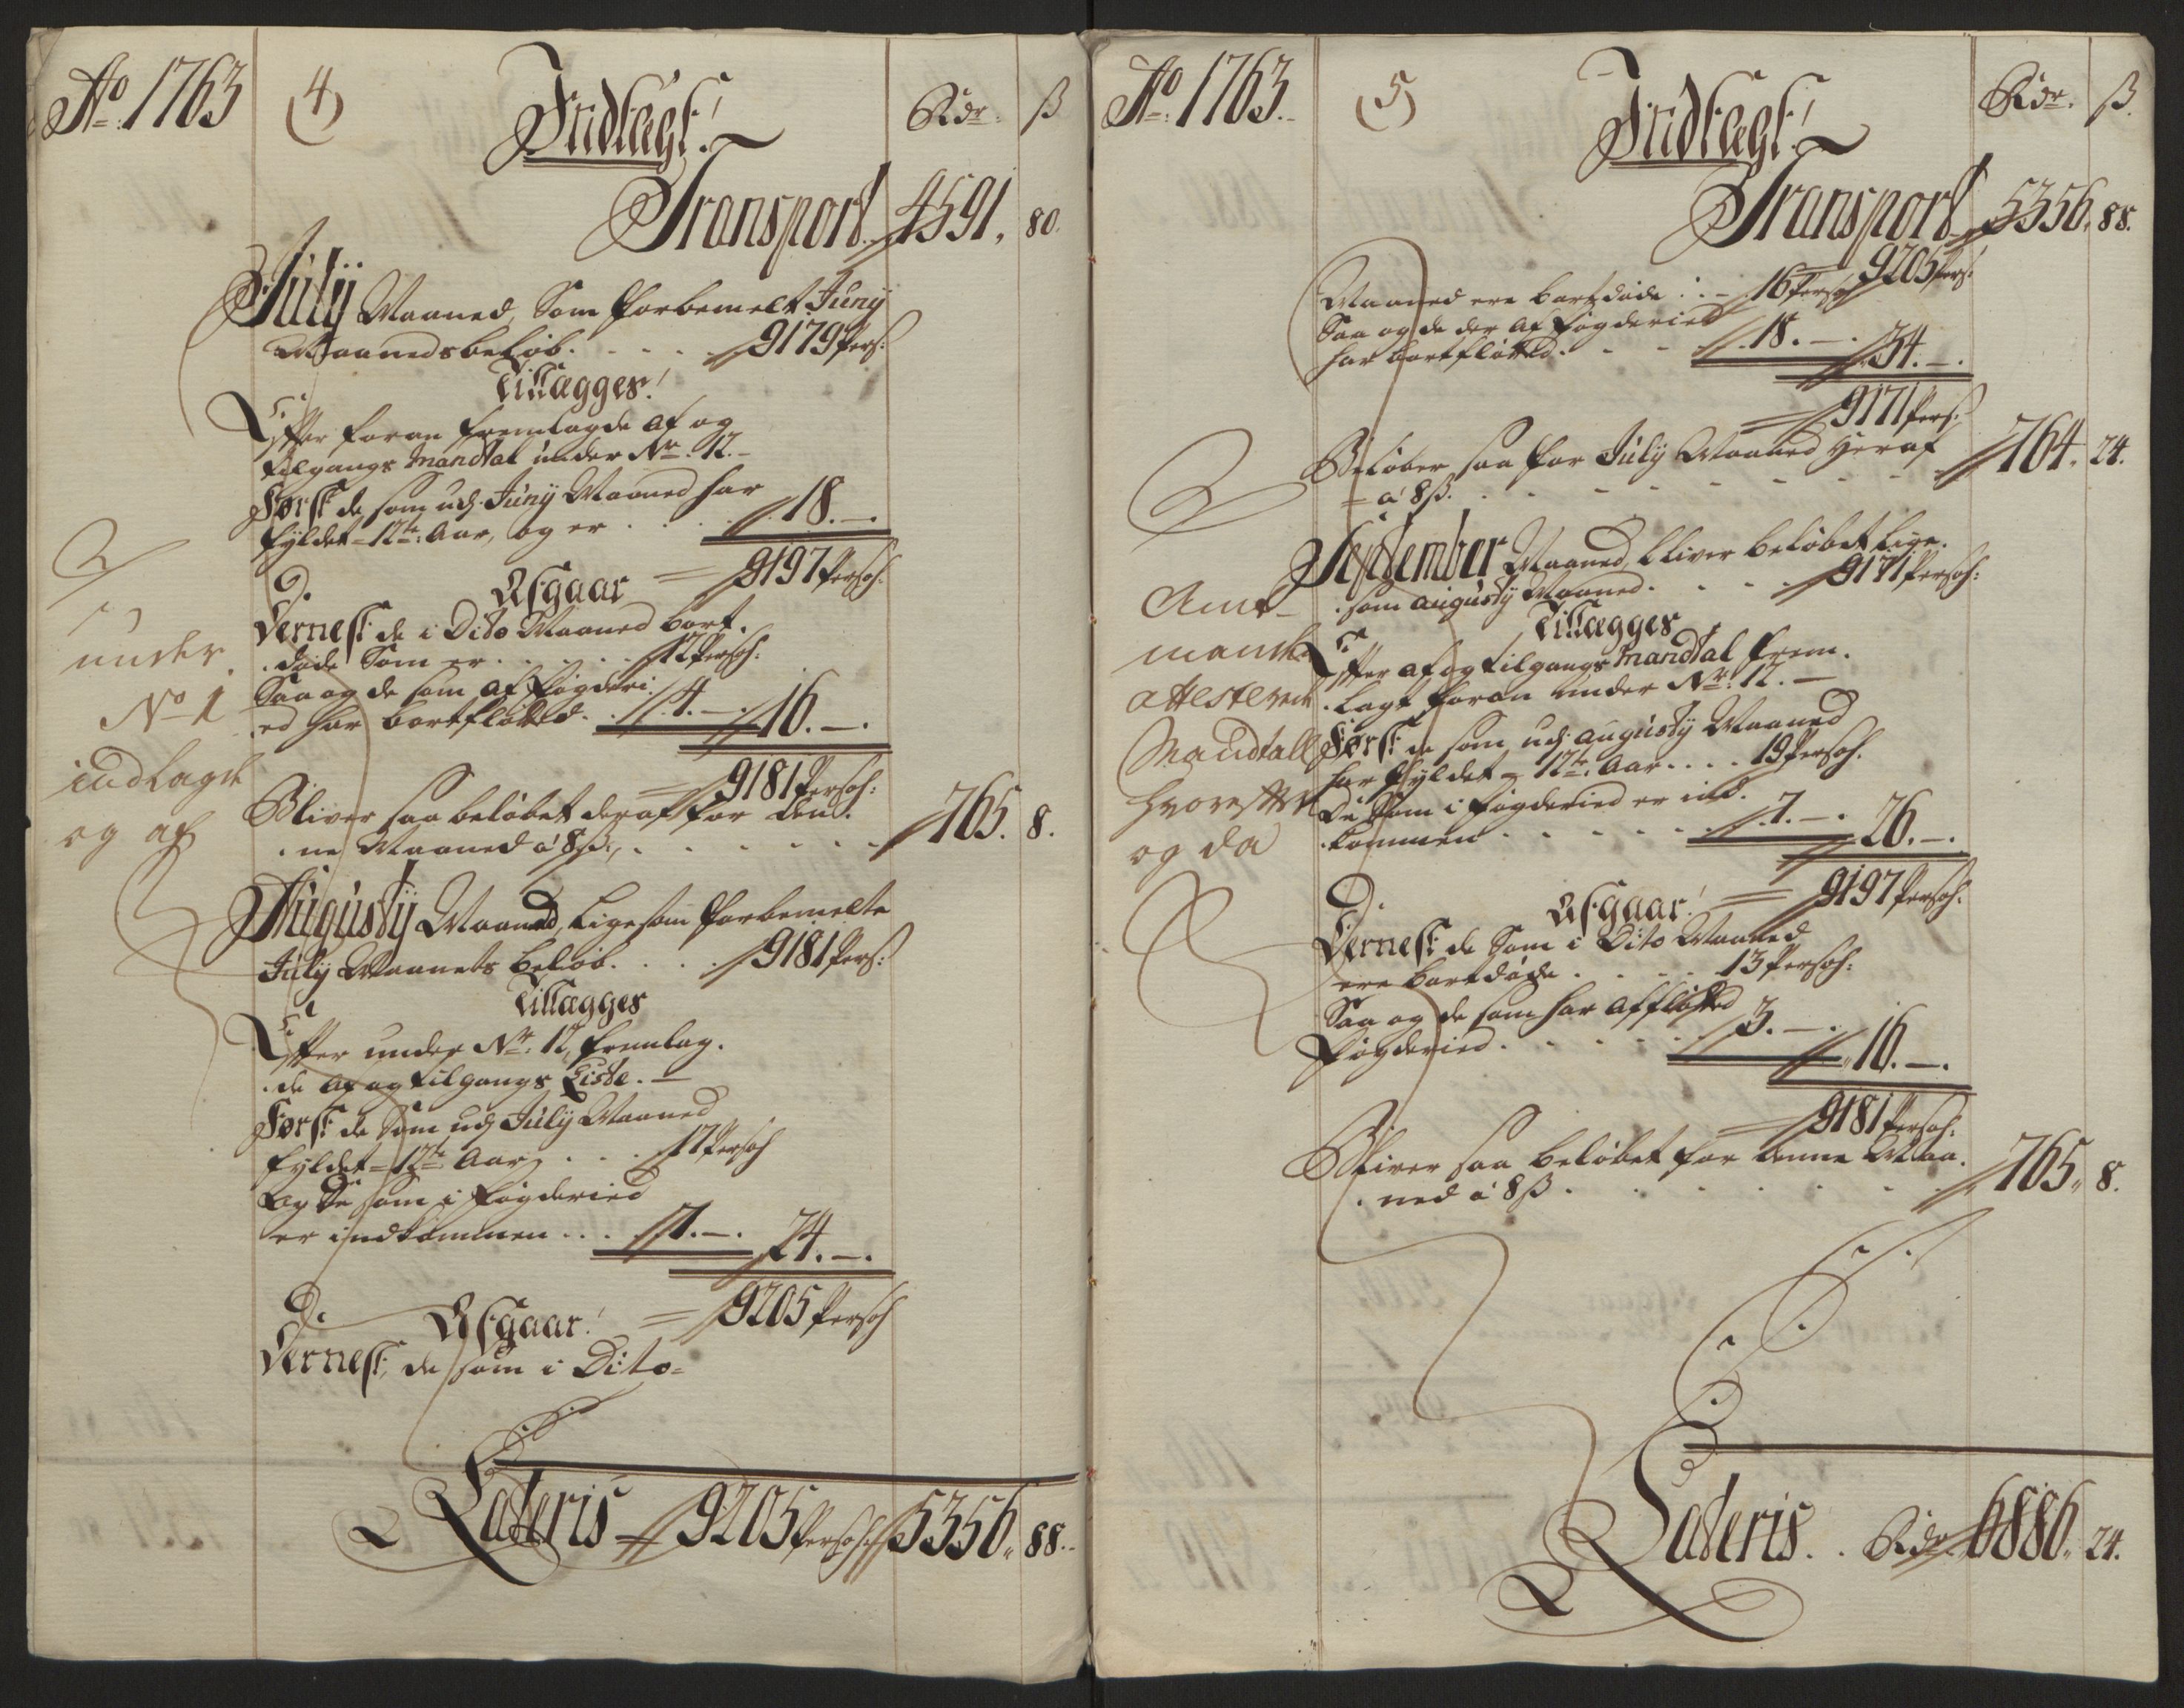 Ao 1763
(4)
Indtægt!
Rdr. ß
Transport 4591. 80.
Julij Maaned, Som forbemelt Junij
Maanedsbeløb. . . . 9179 Pers:
Tillægges!
Efter foran fremlagde af og
tilgangs Mandtal under No. 12. -
Først de som udj Junij Maaned har
fyldet 12te Aar, og er . . . . 18. —.
= 9197 Persoh:
Afgaar
Dernest de i Dito Maaned bort.
.døde Som er . . . . . 12 Persoh:
Saa og de som af fogderi.
.ed har bortfløtted . . 4. —. 16. —.
= 9181 Persoh:
Bliver saa beløbet deraf for den.
.ne Maaned a 8ß., . . . . . . 765. 8.
Augustij Maaned, ligesom forbemelte
Julij Maanets beløb. . . . . 9181 Pers:
Tillægges
Efter under No. 12, fremlag.
.de af og tilgangs Liste. —
Først de Som udj Julij Maaned
fyldet = 12te Aar, . . . 17 Persoh
Og De som i fogderied
er indkommen . . . . 7. —. 24. —.
Afgaar! = 9205 Persoh
Dernest, de som i Dito-
Lateris 9205 Persoh: 5356. 88.
under
No 1
indlagde
og af
Ao. 1763.
(5)
Indtægt!
Rdr. ß.
Transport 5356. 88.
9205 Pers:
Maaned ere bortdøde . . — 16 Persoh
Saa og de der af fogderied
har bortfløtted . . . . 18. —. 34. —.
= 9171 Pers:
Beløber saa for Julij Maaned heraf
= a 8ß. . . . . . . . . 764. 24.
September Maaned, bliver beløbet lige.
.som augustij Maaned . . . . 9171 Persoh:
Tillægges
Efter af og tilgangs Mandtal frem.
.lagt foran under No. 12. —
Først de som udj augustij Maaned
har fyldet = 12te Aar . . . . 19 Persoh.
De Som i fogderied er ind.
.kommen . . . . . . 7. —. 26. —.
Afgaar! = 9197 Persoh.
Dernest de Som i Dito Maaned
ere bortdøde . . . . . 13 Persoh:
Saa og de som har affløtted
fogderied . . . . . . 3. —. 16. —.
= 9181 Persoh:
Bliver saa beløbet for denne Maa.
.ned a 8ß . . . . . . . 765. 8.
Lateris. . Rdr. 6886. 24.
Amt-
mandens
attesterede
Mandtall
hvorefter
og da